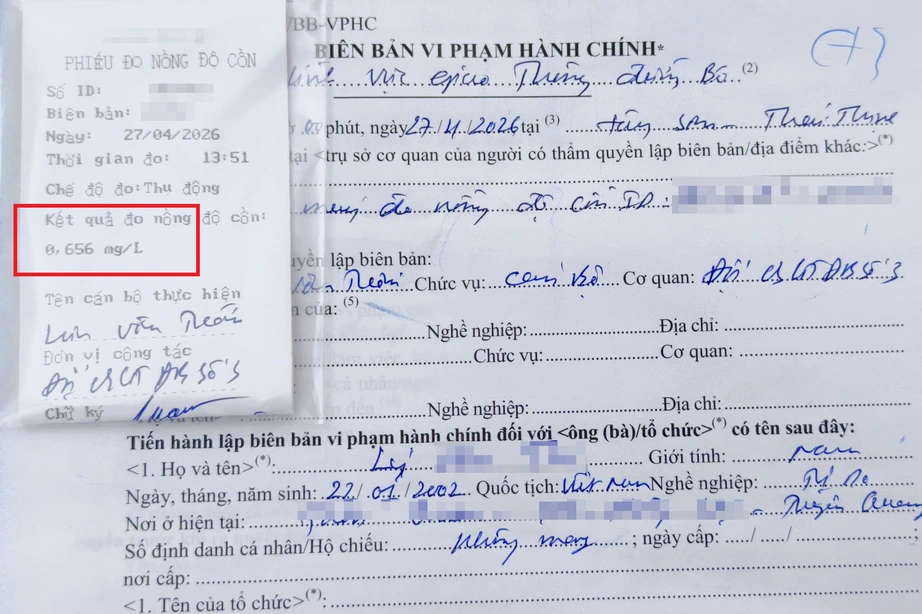 PHIẾU ĐO NỒNG ĐỘ CỒN
Số ID:
Biên bản:
Ngày: 27/04/2026
Thời gian đo: 13:51
Chế độ đo:Thụ động
Kết quả đo nồng độ cồn:
0,656 mg/L
Tên cán bộ thực hiện
Văn
Đơn vị công tác
Đội CSGT ĐB Số 3
Chữ ký
/BB-VPHC
BIÊN BẢN VI PHẠM HÀNH CHÍNH*
vực giao thông đường bộ (2)
00 phút, ngày 27/4/2026 tại (3)
tại <trụ sở cơ quan của người có thẩm quyền lập biên bản/địa điểm khác:>(*)
máy đo nồng độ cồn ID:
quyền lập biên bản:
Chức vụ: cán bộ Cơ quan: Đội CSGT ĐB Số 3
của: (5)
Nghề nghiệp: Địa chỉ:
Chức vụ: Cơ quan:
Nghề nghiệp: Địa chỉ:
Tiến hành lập biên bản vi phạm hành chính đối với <ông (bà)/tổ chức>(*) có tên sau đây:
<1. Họ và tên>(*): Lý Giới tính: nam
Ngày, tháng, năm sinh: 22/01/2002 Quốc tịch: Việt Nam Nghề nghiệp: Tự do
Nơi ở hiện tại: - Tuyên Quang
Số định danh cá nhân/Hộ chiếu: không mang ; ngày cấp: / /
nơi cấp:
<1. Tên của tổ chức>(*):